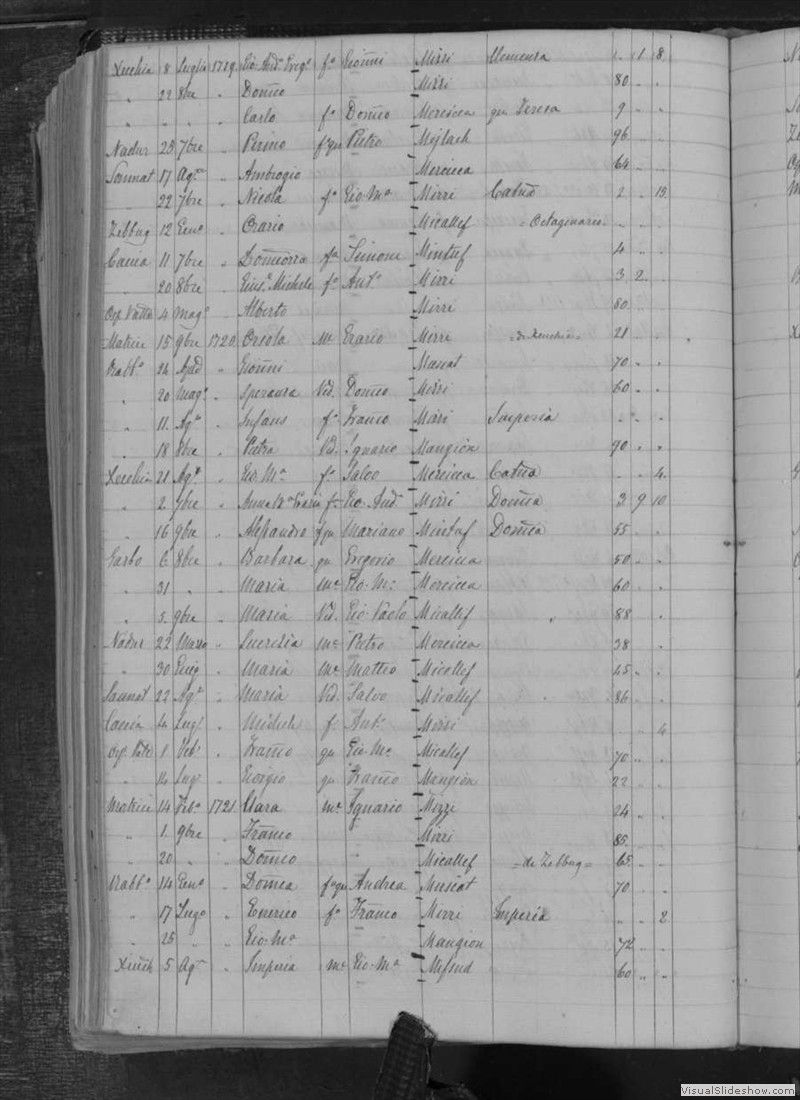 Xeuchia 8 Luglio 1719 Gio. And. Greg.° f° Gioñni Mizzi Clemenza 1 . 1 8
" 22 8bre " Domco Mizzi 80 . .
" " " " Carlo f° Domco Mercieca qm Teresa 9 . .
Nadur 23 7bre " Pirino f qm Pietro Mejlach 96 . .
Sannat 17 Ag.to " Ambrogio Mercieca 64 . .
22 7bre " Nicola f° Gio Ma Mizzi Catna 2 . 13
Zebbug 12 Genn° " Orario Micallef = Octogenario . .
Caccia 11 7bre " Domcorra Simone Mintuf 4 . .
20 8bre " Gius. Michele f° Ant° Mizzi 3 2 .
4 Mag.° " Alberto Mizzi 80 . .
Matrice 15 9bre 1720 Orsola Me Mizzi = di Xeuchia = 21 . .
Rabb.° 24 " Gioñni Muscat 70 . .
" 20 Mag.° " Speranza Vid. Domco Mizzi 60 . .
" 11 Ag.to " Infans f° Franco Mizzi Imperia . .
" 18 8bre " Pietra Vid. Ignazio Mangion 90 . .
Xeuchia 21 Ag.to " Gio Ma f° Salvo Mercieca Catna . . 4
" 2 7bre " f° Gio. And. Mizzi Domca 3 9 10
" 16 9bre " Alessandro f qm Mariano Mintuf Domca 55 . .
Garbo 6 8bre " Barbara qm Gregorio Mercieca 50 . .
" 31 " " Maria Me Gio. Ma Mercieca 60 . .
" 5 9bre " Maria Vid. Gio Paolo Micallef 88 . .
Nadur 22 Marzo " Lucrezia Me Pietro Mercieca 38 . .
" 30 " Maria Me Matteo Micallef 45 . .
Sannat 22 Ag.to " Maria Vid. Salvo Micallef 86 . .
Caccia 4 Lugl. " Michele f° Ant° Mizzi . . 4
1 Feb° " Franco qm Gio. Ma Micallef 70 . .
" 14 Lug° " Giorgio qm Franco Mangion 22 . .
Matrice 14 Feb° 1721 Clara Me Ignazio Mizzi 24 . .
" 1 9bre " Franco Mizzi 85 . .
" 20 " " Domco " Micallef = di Zebbug = 65 . .
Rabb.° 14 Genn° " Domca f qm Andrea Muscat 70 . .
" 17 Lug° " f° Franco Mizzi Imperia . . 2
" 25 " " Gio. Ma Mangion 72 . .
Xeuch 5 Ag.to " Imperia Me Gio. Ma Mifsud 60 . .
VisualSlideshow.com